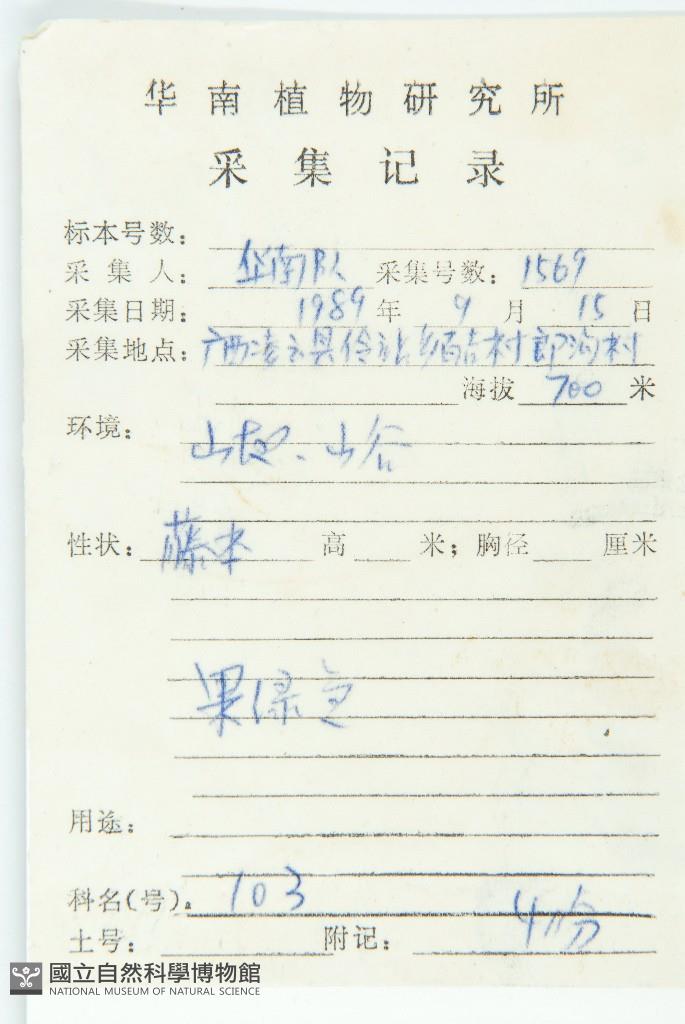 华南植物研究所
采集记录
标本号数：
采集人：华南队 采集号数：1569
采集日期：1989年9月15日
采集地点：广西凌云县伶站乡 村 沟村
海拔 700 米
环境：
山坡、山谷
性状：藤本 高 米；胸径 厘米
果绿色
用途：
科名(号)。103
土号： 附记：4份
國立自然科學博物館
NATIONAL MUSEUM OF NATURAL SCIENCE